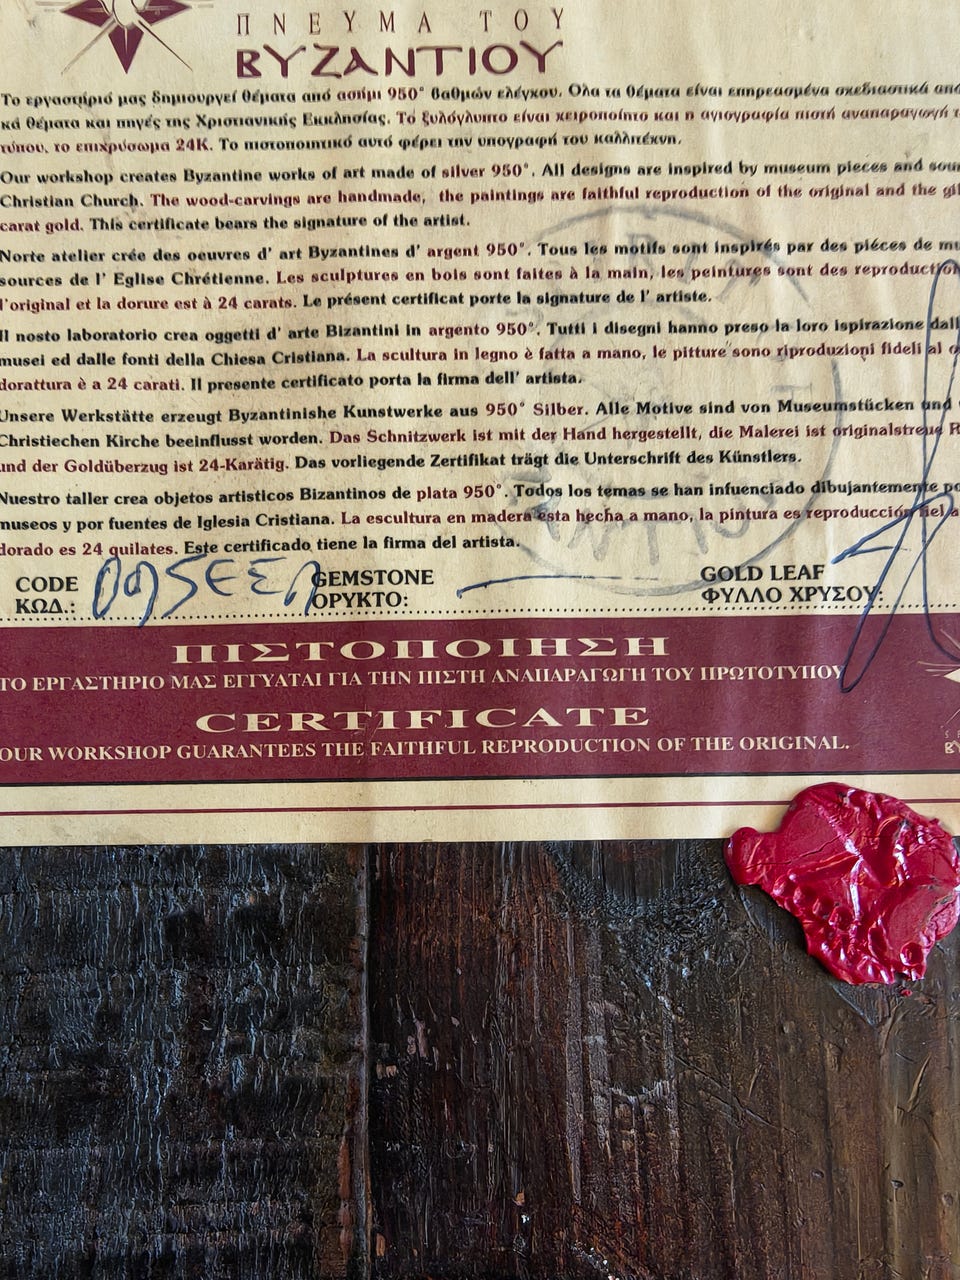 ΠΝΕΥΜΑ ΤΟΥ
ΒΥΖΑΝΤΙΟΥ
Το εργαστήριό μας δημιουργεί θέματα από ασήμι 950° βαθμών ελέγχου. Όλα τα θέματα είναι επηρεασμένα σχεδιαστικά από
κά θέματα και πηγές της Χριστιανικής Εκκλησίας. Το ξυλόγλυπτο είναι χειροποίητο και η αγιογραφία πιστή αναπαραγωγή
τύπου, το επιχρύσωμα 24Κ. Το πιστοποιητικό αυτό φέρει την υπογραφή του καλλιτέχνη.
Our workshop creates Byzantine works of art made of silver 950°. All designs are inspired by museum pieces and sou
Christian Church. The wood-carvings are handmade, the paintings are faithful reproduction of the original and the gi
carat gold. This certificate bears the signature of the artist.
Norte atelier crée des oeuvres d' art Byzantines d' argent 950°. Tous les motifs sont inspirés par des piéces de mu
sources de l' Eglise Chrétienne. Les sculptures en bois sont faites à la main, les peintures sont des reproduction
l'original et la dorure est à 24 carats. Le présent certificat porte la signature de l' artiste.
Il nosto laboratorio crea oggetti d' arte Bizantini in argento 950°. Tutti i disegni hanno preso la loro ispirazione dall
musei ed dalle fonti della Chiesa Cristiana. La scultura in legno è fatta a mano, le pitture sono riproduzioni fideli al o
dorattura è a 24 carati. Il presente certificato porta la firma dell' artista.
Unsere Werkstätte erzeugt Byzantinishe Kunstwerke aus 950° Silber. Alle Motive sind von Museumstücken und
Christiechen Kirche beeinflusst worden. Das Schnitzwerk ist mit der Hand hergestellt, die Malerei ist originalstreue R
und der Goldüberzug ist 24-Karätig. Das vorliegende Zertifikat trägt die Unterschrift des Künstlers.
Nuestro taller crea objetos artisticos Bizantinos de plata 950°. Todos los temas se han infuenciado dibujantemente po
museos y por fuentes de Iglesia Cristiana. La escultura en madera esta hecha a mano, la pintura es reproducción fiel a
dorado es 24 quilates. Este certificado tiene la firma del artista.
CODE GEMSTONE GOLD LEAF
ΚΩΔ.: ΟΡΥΚΤΟ: ΦΥΛΛΟ ΧΡΥΣΟΥ:
ΠΙΣΤΟΠΟΙΗΣΗ
ΤΟ ΕΡΓΑΣΤΗΡΙΟ ΜΑΣ ΕΓΓΥΑΤΑΙ ΓΙΑ ΤΗΝ ΠΙΣΤΗ ΑΝΑΠΑΡΑΓΩΓΗ ΤΟΥ ΠΡΩΤΟΤΥΠΟΥ
CERTIFICATE
OUR WORKSHOP GUARANTEES THE FAITHFUL REPRODUCTION OF THE ORIGINAL.